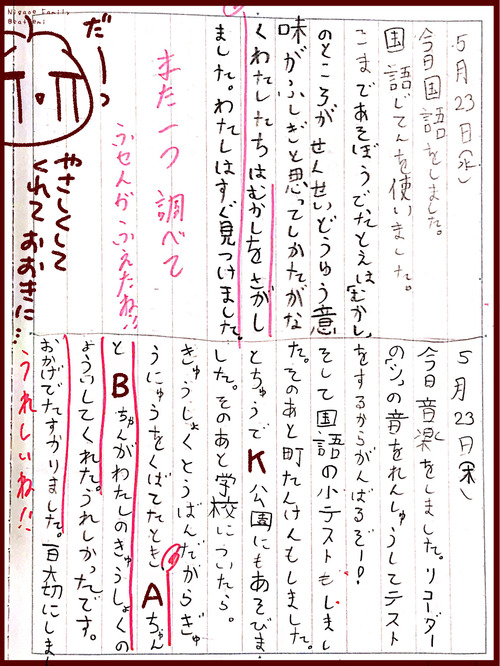 5月23日(水)
今日国語をしました。
国語じてんを使いました。
こまであそぼうでたとえば「むかし」
のところがせんせいどうゆう意
味がふしぎと思ってしかたがな
くわたしたちはむかしをさがし
ました。わたしはすぐ見つけました。
また一つ調べて
ふせんがふえたね!!
だーっ
やさしくして
くれておおきに…
Nigaoe Family
5月23日(木)
今日音楽をしました。リコーダー
のシの音をれんしゅうしてテスト
をするからがんばるぞー!
そして国語の小テストもしまし
た。そのあと町たんけんもしました。
とちゅうでK公園にもあそびま
した。そのあと学校についたら。
きゅうしょくとうばんだからぎゅ
うにゅうをくばてたとき Aちゃん
と Bちゃんがわたしのきゅうしょくの
よういしてくれた。うれしかったです。
おかげでたすかりました。百大切にしま
うれしいね!!